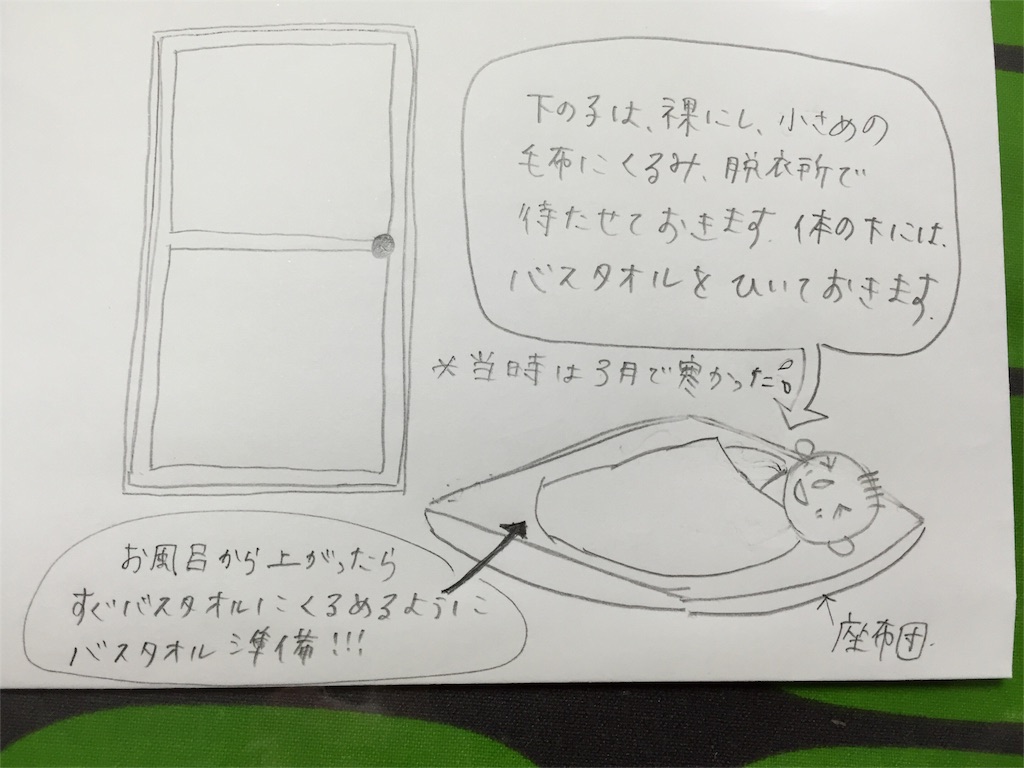 下の子は、裸にし、小さめの
毛布にくるみ、脱衣所で
待たせておきます。体の下には、
バスタオルをひいておきます。
※当時は3月で寒かった
お風呂から上がったら
すぐバスタオルにくるめるように
バスタオル準備!!!
座布団.